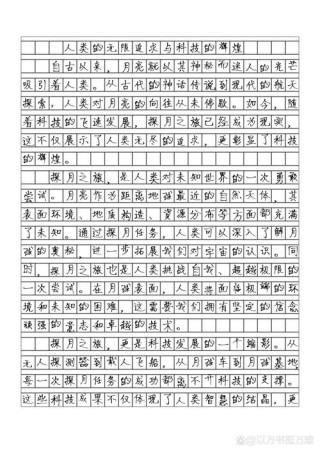 人类的无限追求与科技的辉煌
自古以来，月亮就以其神秘而迷人的光芒
吸引着人类。从古代的神话传说到现代的航天
探索，人类对月亮的向往从未停歇。如今，随
着科技的飞速发展，探月之旅已经成为现测，
这不仅展示了人类无尽的追求，更彰显了科技
的辉煌。
探月之旅，是人类对未知世界的一次勇敢
尝试。月亮作为距离地球最近的自然天体，其
表面环境、地质构造、资源分布等方面都充满
了未知。通过探月任务，人类可以深入了解月
球的奥秘，进一步拓展我们对宇宙的认识。同
时，探月之旅也是人类挑战自我、超越极限的
一次尝试。在月球表面，人类将面临极端的环
境和未知的困难，这需要我们拥有坚定的信念
顽强的意志和卓越的技术。
探月之旅，更是科技发展的一个缩影。从
无人探测器到载人飞船，从月球车到月球基地，
每一次探月任务的成功都离不开科技的支撑。
这些科技成果不仅体现了人类智慧的结晶，更
@以方书匠方璋